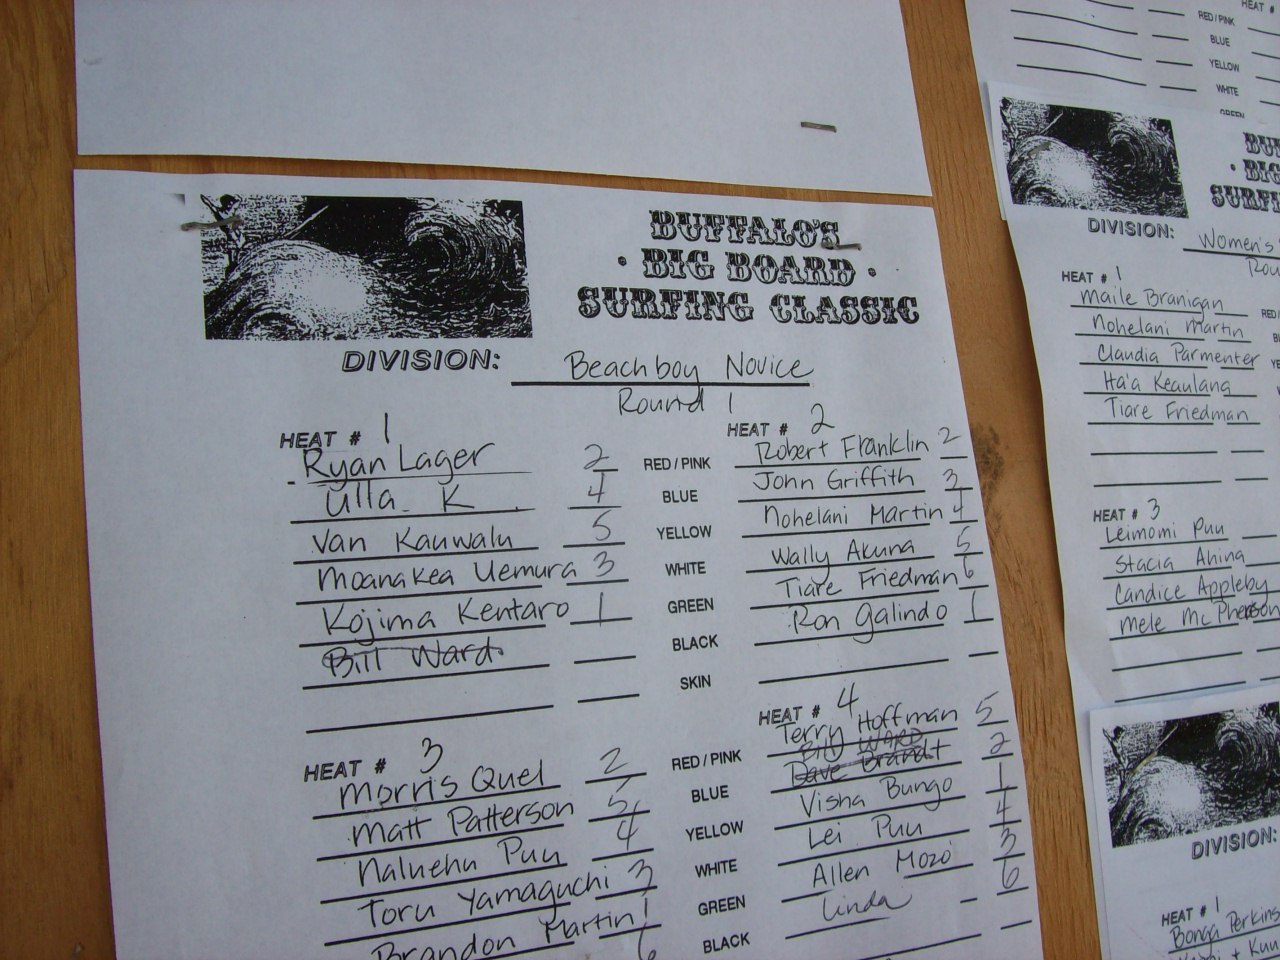 BUFFALO'S
· BIG BOARD ·
SURFING CLASSIC
DIVISION: Beachboy Novice
Round 1
HEAT # 1
Ryan Lager 2 RED / PINK
Ulla K 4 BLUE
Van Kauwalu 5 YELLOW
Moanakea Uemura 3 WHITE
Kojima Kentaro 1 GREEN
Bill Ward BLACK
SKIN
HEAT # 2
Robert Franklin 2
John Griffith 3
Nohelani Martin 4
Wally Akuna 5
Tiare Friedman 6
Ron Galindo 1
HEAT # 3
Morris Quel 2 RED / PINK
Matt Patterson 5 BLUE
Naluehu Puu 4 YELLOW
Toru Yamaguchi 3 WHITE
Brandon Martin 1 GREEN
6 BLACK
HEAT # 4
Terry Hoffman 5
Bill WARD
Dave Brandt 2
Visha Bungo 1
Lei Puu 4
Allen Mozo 3
Linda 6
HEAT #
RED / PINK
BLUE
YELLOW
WHITE
GREEN
BIG
DIVISION: Women's
HEAT # 1
Maile Branigan
Nohelani Martin
Claudia Parmenter
Ha'a Keaulana
Tiare Friedman
HEAT # 3
Leimomi Puu
Stacia Ahina
Candice Appleby
Mele McPherson
DIVISION:
HEAT # 1
Bonga Perkins